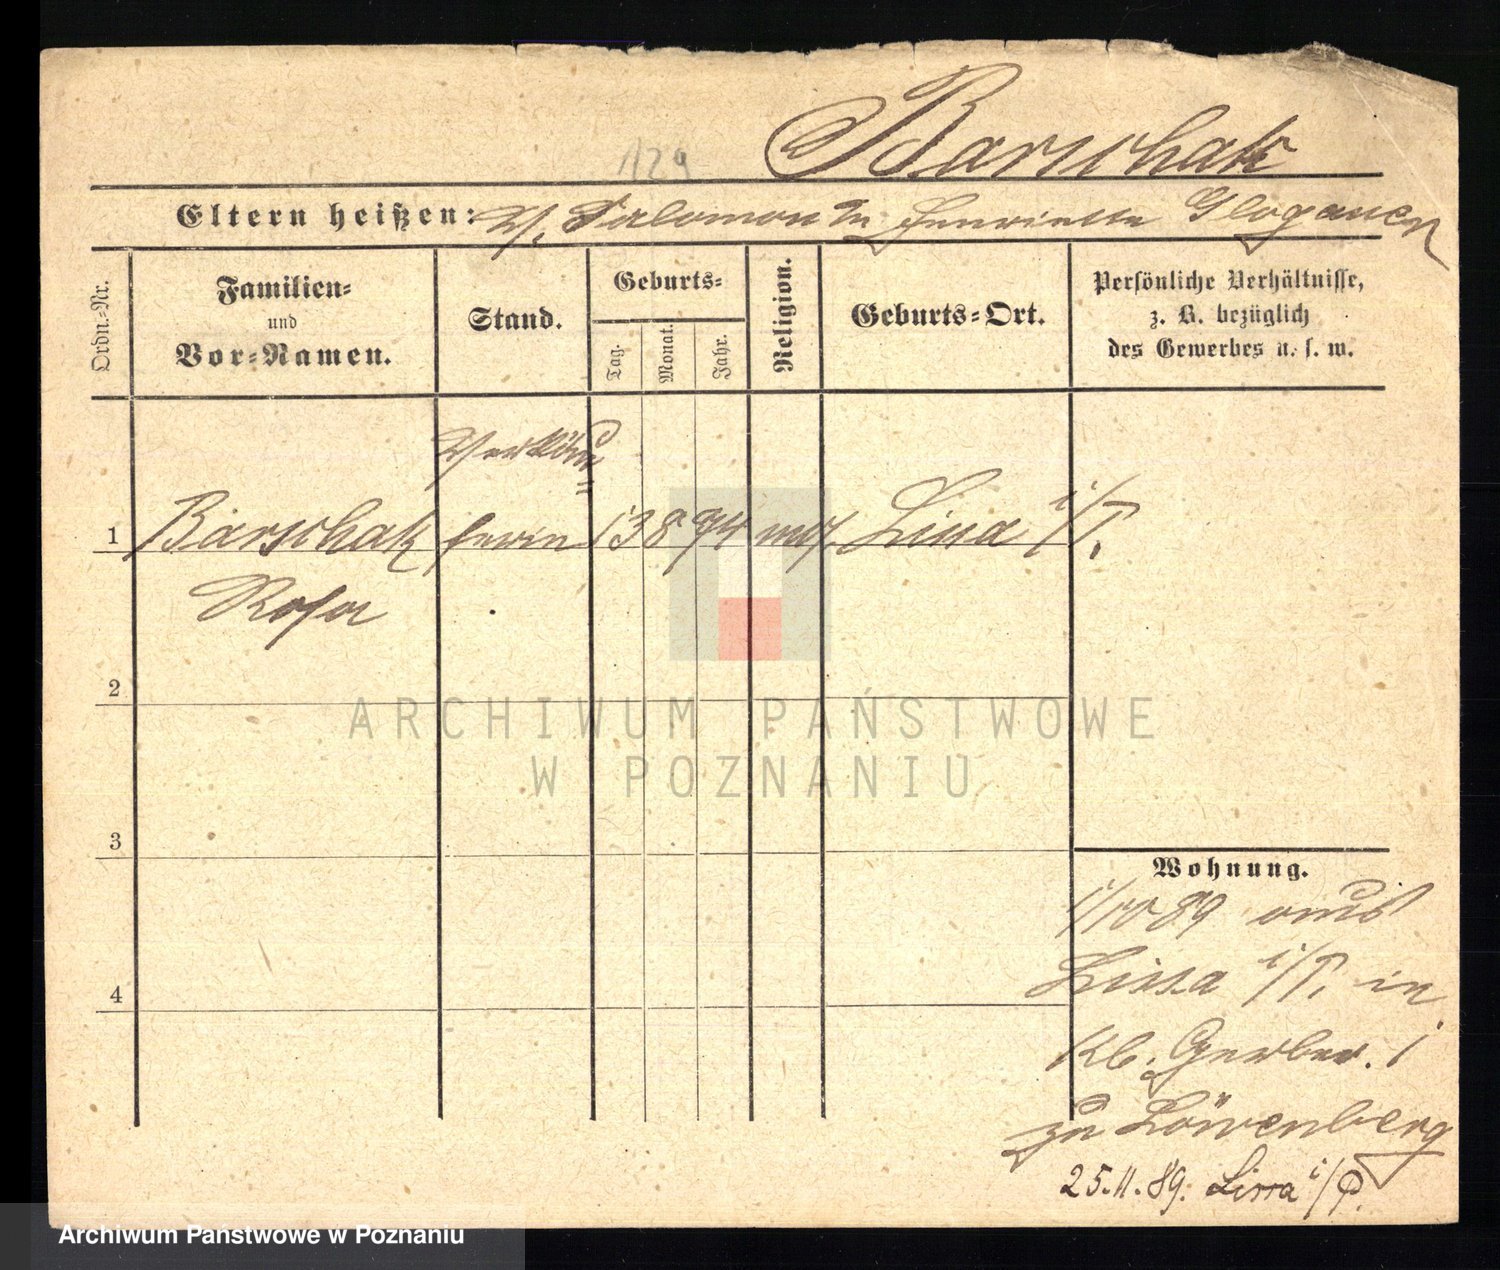 129
Barschak
Eltern heißen: V. Salomon u. Henriette Glogauer
Ordn.-Nr.
Familien-
und
Vor-Namen.
Stand.
Geburts-
Tag.
Monat.
Jahr.
Religion.
Geburts-Ort.
Persönliche Verhältnisse,
z. B. bezüglich
des Gewerbes u. s. w.
Verkäu=
1 Barschak ferin 13 8 74 mos. Lissa i/P.
Rosa
2
3
4
ARCHIWUM PAŃSTWOWE
W POZNANIU
Wohnung.
1/10 89 aus
Lissa i/P. in
Kl. Gerber. 1
zu Löwenberg
25.11.89. Lissa i/P.
Archiwum Państwowe w Poznaniu